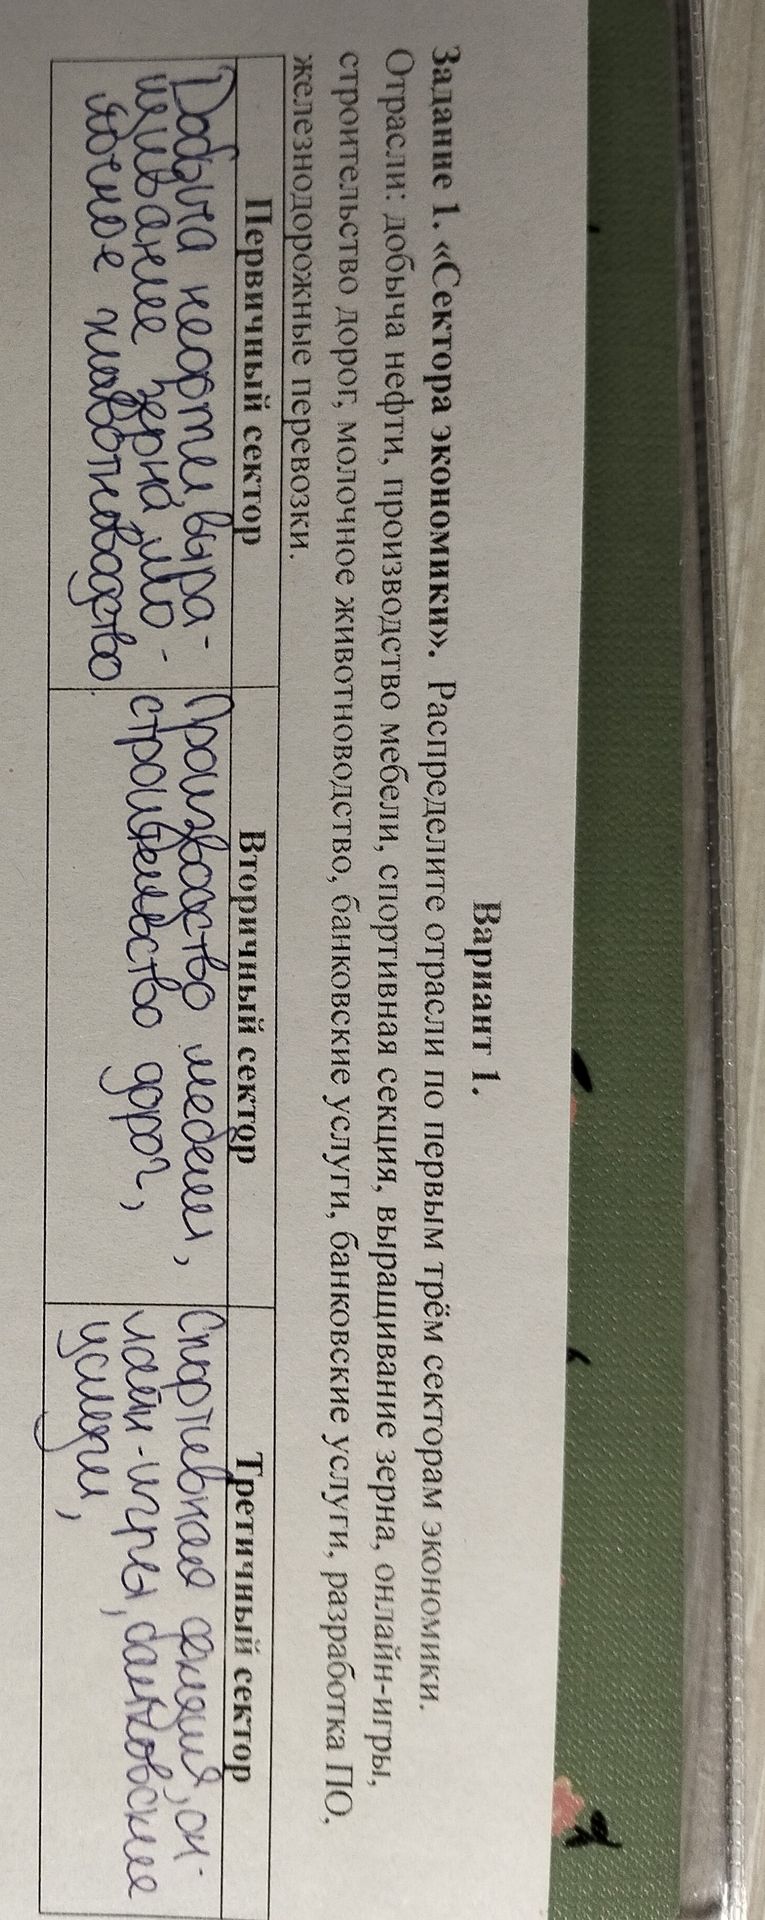 Вариант 1.
Задание 1. «Сектора экономики». Распределите отрасли по первым трём секторам экономики.
Отрасли: добыча нефти, производство мебели, спортивная секция, выращивание зерна, онлайн-игры,
строительство дорог, молочное животноводство, банковские услуги, банковские услуги, разработка ПО,
железнодорожные перевозки.
Первичный сектор
Вторичный сектор
Третичный сектор
Добыча нефти, выра-
щивание зерна, мо-
лочное животноводство.
Производство мебели,
строительство дорог,
Спортивная секция, он-
лайн-игры, банковские
услуги,